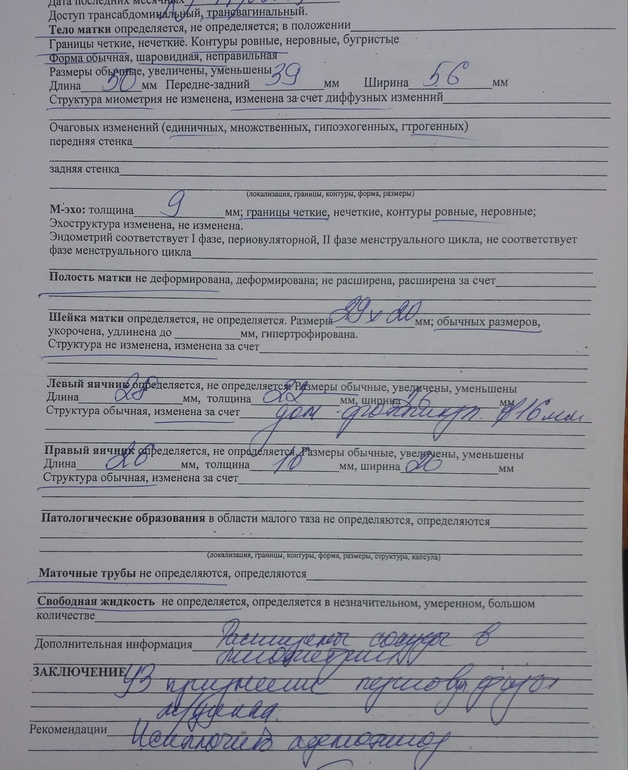 Дата последних месячных
Доступ трансабдоминальный, трансвагинальный.
Тело матки определяется, не определяется; в положении
Границы четкие, нечеткие. Контуры ровные, неровные, бугристые
Форма обычная, шаровидная, неправильная
Размеры обычные, увеличены, уменьшены
Длина 50 мм Передне-задний 39 мм Ширина 56 мм
Структура миометрия не изменена, изменена за счет диффузных изменний
Очаговых изменений (единичных, множественных, гипоэхогенных, гтрогенных)
передняя стенка
задняя стенка
(локализация, границы, контуры, форма, размеры)
М-эхо: толщина 9 мм; границы четкие, нечеткие, контуры ровные, неровные;
Эхоструктура изменена, не изменена.
Эндометрий соответствует I фазе, периовуляторной, II фазе менструального цикла, не соответствует
фазе менструального цикла
Полость матки не деформирована, деформирована; не расширена, расширена за счет
Шейка матки определяется, не определяется. Размеры 39 х 20 мм; обычных размеров,
укорочена, удлинена до мм, гипертрофирована.
Структура не изменена, изменена за счет
Левый яичник определяется, не определяется Размеры обычные, увеличены, уменьшены
Длина 28 мм, толщина 22 мм, ширина мм
Структура обычная, изменена за счет дом. фолликул 16 мм
Правый яичник определяется, не определяется, Размеры обычные, увеличены, уменьшены
Длина 26 мм, толщина 18 мм, ширина 20 мм
Структура обычная, изменена за счет
Патологические образования в области малого таза не определяются, определяются
(локализация, границы, контуры, форма, размеры, структура, капсула)
Маточные трубы не определяются, определяются
Свободная жидкость не определяется, определяется в незначительном, умеренном, большом
количестве
Дополнительная информация Расширены сосуды в
миометрии
ЗАКЛЮЧЕНИЕ УЗ признаки первой фазы
м/цикла.
Рекомендации Исключить аденомиоз